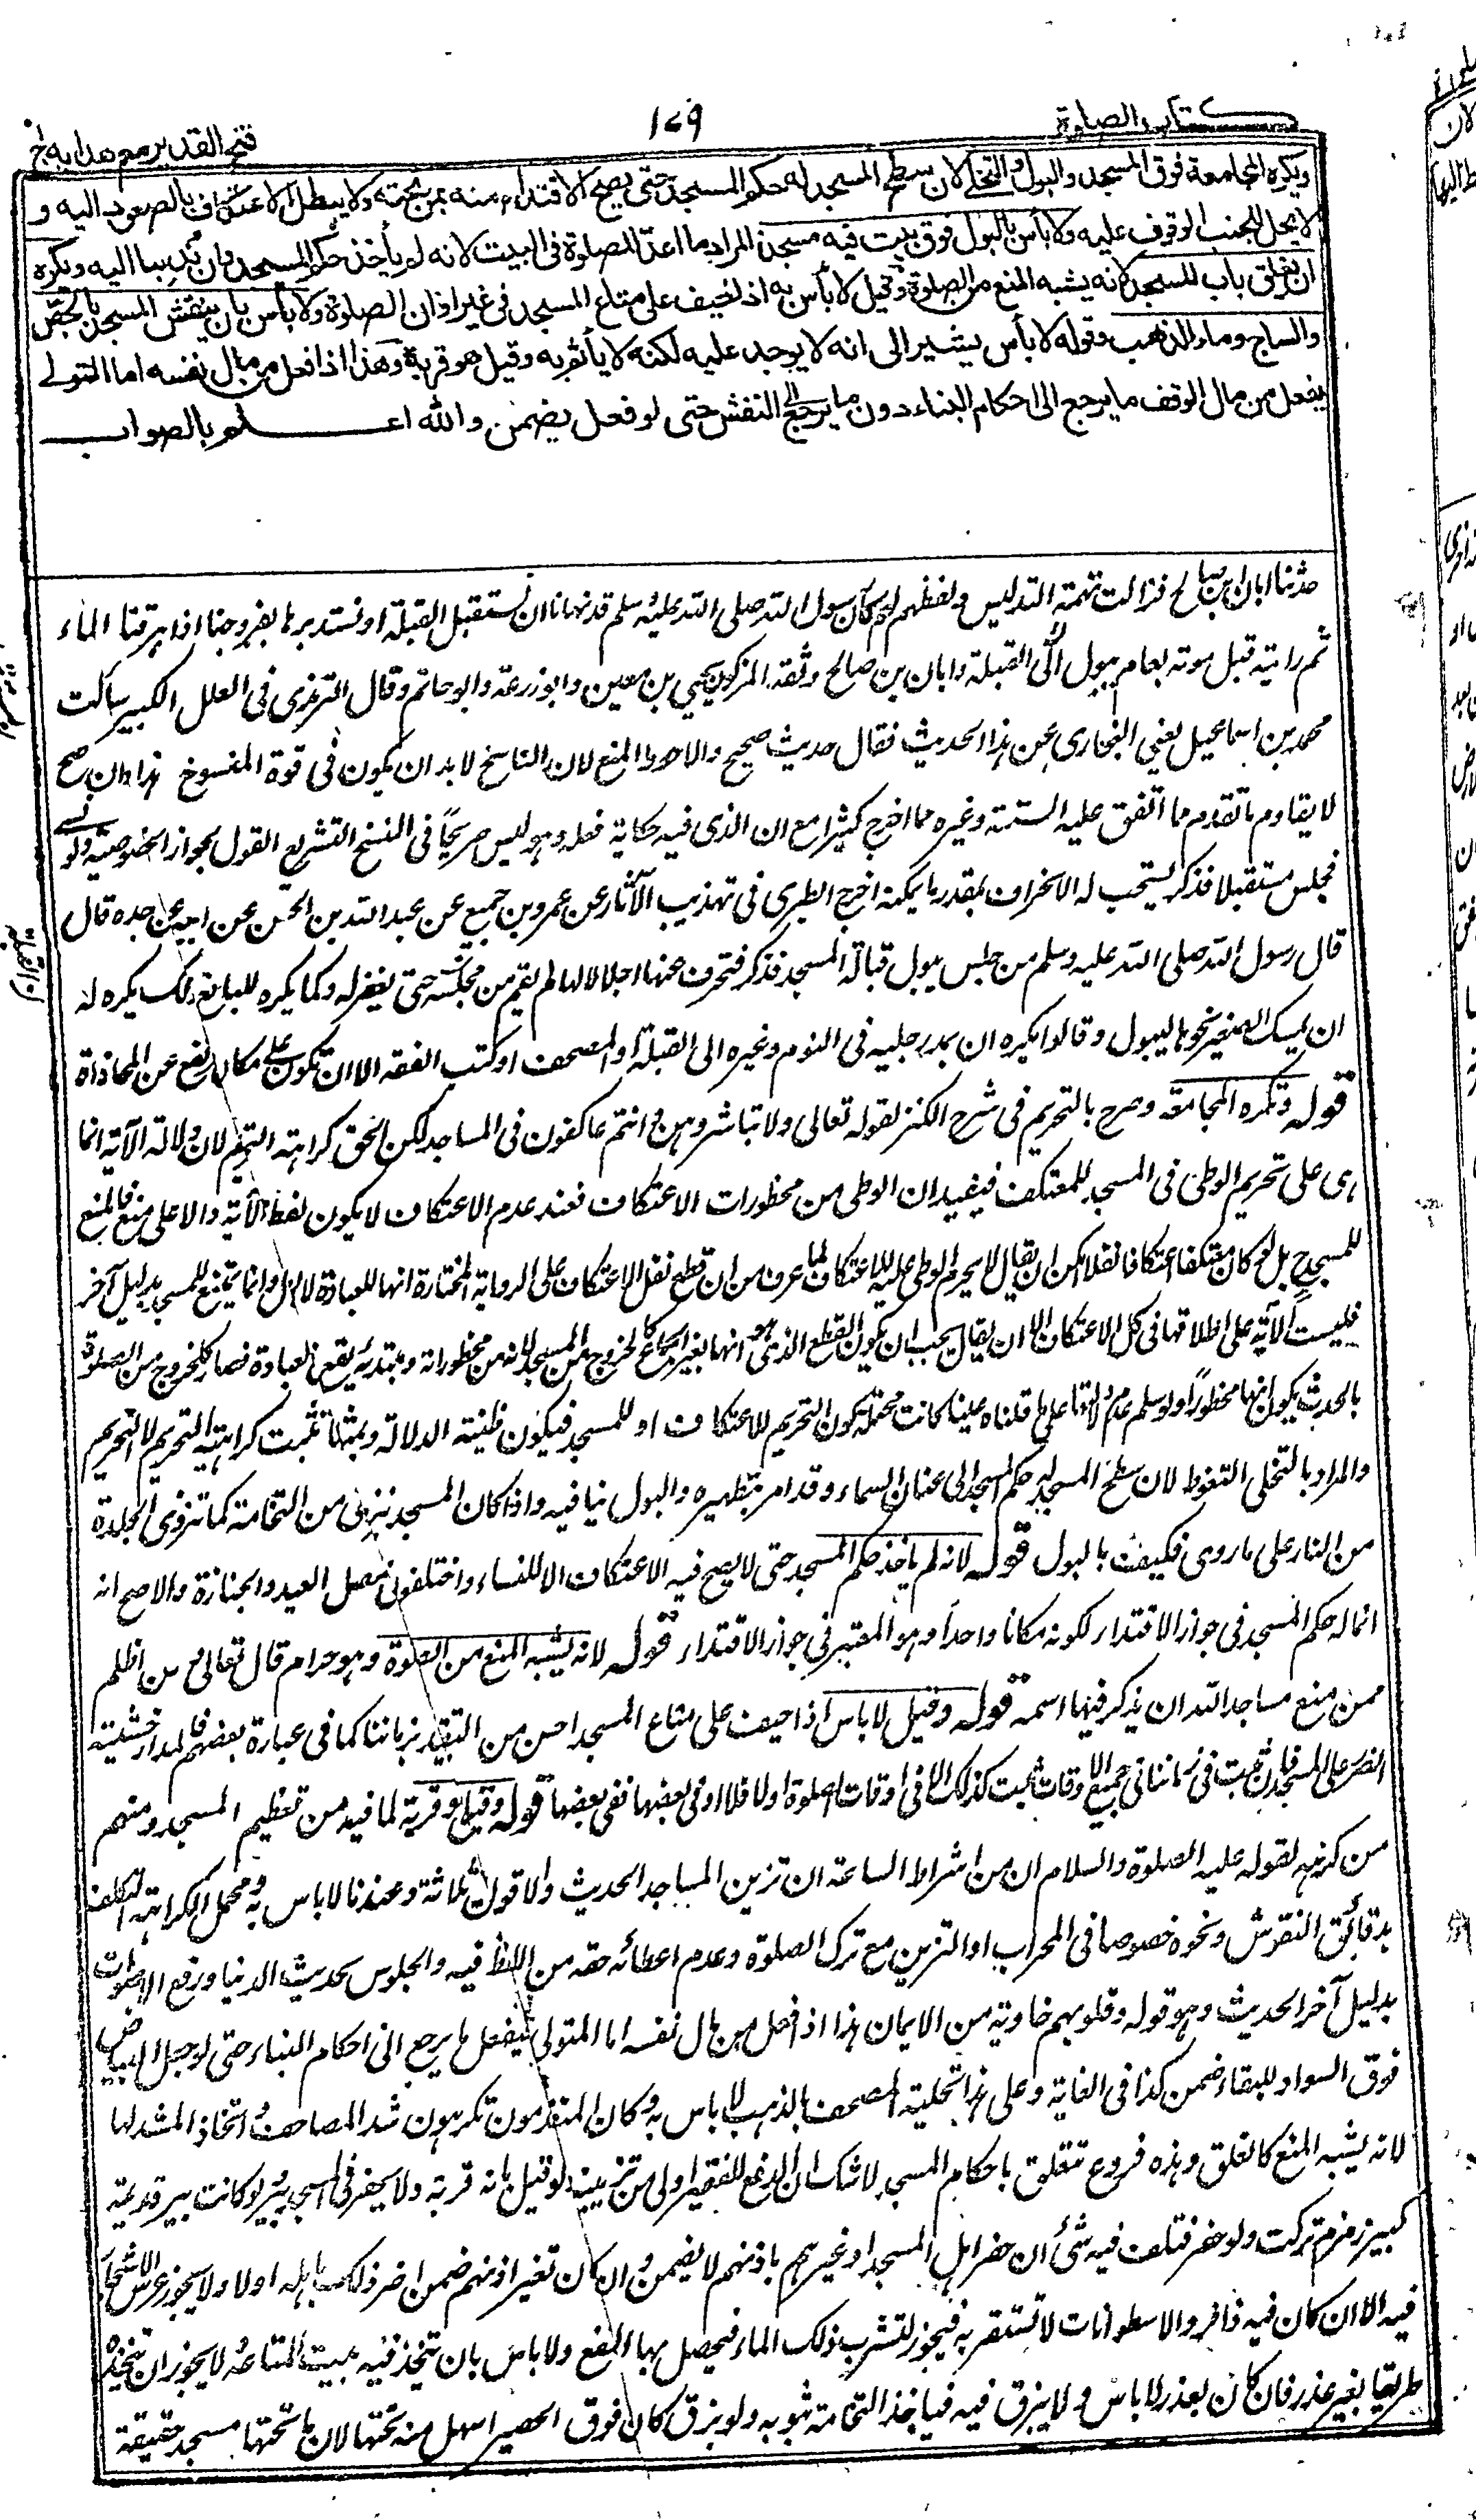 كتاب الصلوة
١٧٩
فتح القدير مع هدايه ج
ويكره المجامعة فوق المسجد والبول والتخلى لان سطح المسجد له حكم المسجد حتى يصح الاقتداء منه بمن تحته ولا يبطل الاعتكاف بالصعود اليه و
لا يحل للجنب الوقوف عليه ولا بأس بالبول فوق بيت فيه مسجد والمراد ما اعد للصلوة فى البيت لانه لم يأخذ حكم المسجد وان ندبنا اليه ويكره
ان يغلق باب المسجد لانه يشبه المنع من الصلوة وقيل لا بأس به اذا خيف على متاع المسجد فى غير اوان الصلوة ولا بأس بان ينقش المسجد بالجص
والساج وماء الذهب وقوله لا بأس يشير الى انه لا يوجد عليه لكنه لا يأثم به وقيل هو قربة وهذا اذا فعل من مال نفسه اما المتولى
يفعل من مال الوقف ما يرجع الى احكام البناء دون ما يرجع الى النقش حتى لو فعل يضمن والله اعلم بالصواب
حدثنا ابان بن صالح فزالت تهمة التدليس ولفظهم كان رسول الله صلى الله عليه وسلم قد نهانا ان نستقبل القبلة او نستدبرها بفروجنا اذا اهرقنا الماء
ثم رايته قبل موته بعام يبول الى القبلة وابان بن صالح وثقه المزكون يحيى بن معين وابو زرعة وابو حاتم وقال الترمذى فى العلل الكبير سالت
محمد بن اسماعيل يعنى البخارى عن هذا الحديث فقال حديث صحيح والاحوط المنع لان الناسخ لا بد ان يكون فى قوة المنسوخ هذا وان صح
لا يقاوم ما تقدم مما اتفق عليه الستة وغيره مما اخرج كثيرا مع ان الذى فيه حكاية فعله وهو ليس صريحا فى النسخ التشريع القول بجواز الخصوصية ولو نسى
فجلس مستقبلا فذكر يستحب له الانحراف بقدر ما يمكنه اخرج الطبرى فى تهذيب الآثار عن عمرو بن جميع عن عبد الله بن الحسن عن ابيه عن جده قال
قال رسول الله صلى الله عليه وسلم من جلس يبول قبالة المسجد فذكر فتحرف عنها اجلالا لها لم يقم من مجلسه حتى يغفر له وكما يكره للبالغ ذلك يكره له
ان يمسك الصغير نحوها ليبول وقالوا يكره ان يمد رجليه فى النوم وغيره الى القبلة او المصحف او كتب الفقه الا ان تكون على مكان مرتفع عن المحاذاة
قوله وتكره المجامعة وصرح بالتحريم فى شرح الكنز لقوله تعالى ولا تباشروهن وانتم عاكفون فى المساجد لكن الحق كراهة التحريم لان دلالة الآية انما
هى على تحريم الوطى فى المسجد للمعتكف فيفيد ان الوطى من محظورات الاعتكاف فعند عدم الاعتكاف لا يكون لفظ الآية دالا على منع فالمنع
للمسجد بل لو كان معتكفا اعتكافا نفلا يمكن ان يقال لا يحرم الوطى عليه للاعتكاف لما عرف من ان قطع نفل الاعتكاف على الرواية المختارة انها للعبادة لا ابطال وانما يمتنع للمسجد بدليل آخر
فليست الآية على اطلاقها فى كل الاعتكاف الا ان يقال يجب ان يكون القطع الذى هو انهاء بغير الجماع كالخروج من المسجد لانه من محظوراته ومبتدئه يقع فى العبادة فصار كالخروج من الصلوة
بالحدث يكون انهاء محظورا ولو سلم عدم دلالتها على ما قلناه عينا كانت محتملة لكون التحريم للاعتكاف او للمسجد فيكون ظنية الدلالة وبمثلها تثبت كراهية التحريم لا التحريم
والمراد بالتخلى التغوط لان سطح المسجد له حكم المسجد الى عنان السماء وقد امر بتطهيره والبول ينافيه واذا كان المسجد ينزوى من النخامة كما تنزوى الجلدة
من النار على ما روى فكيف بالبول قوله لانه لم يأخذ حكم المسجد حتى لا يصح فيه الاعتكاف الا للنساء واختلفوا فى مصلى العيد والجنازة والاصح انه
انما له حكم المسجد فى جواز الاقتداء لكونه مكانا واحدا وهو المعتبر فى جواز الاقتداء قوله لانه يشبه المنع من الصلوة وهو حرام قال تعالى ومن اظلم
ممن منع مساجد الله ان يذكر فيها اسمه قوله وقيل لا بأس اذا خيف على متاع المسجد احسن من التقييد بزماننا كما فى عبارة بعضهم فالمدار خشية
الضرر على المسجد فان ثبت فى زماننا فى جميع الاوقات ثبت كذلك الا فى اوقات الصلوة اولا فلا او فى بعضها ففى بعضها قوله وقيل هو قربة لما فيه من تعظيم المسجد ومنهم
من كرهه لقوله عليه الصلوة والسلام ان من اشراط الساعة ان تزين المساجد الحديث والاقوال ثلاثة وعندنا لا باس به ومحمل الكراهة التكلف
بدقائق النقوش ونحوه خصوصا فى المحراب او التزين مع ترك الصلوة وعدم اعطائه حقه من اللغط فيه والجلوس لحديث الدنيا ورفع الاصوات
بدليل آخر الحديث وهو قوله وقلوبهم خاوية من الايمان هذا اذا فعل من مال نفسه اما المتولى فيفعل ما يرجع الى احكام البناء حتى لو جعل البياض
فوق السواد للبقاء ضمن كذا فى الغاية وعلى هذا تحلية المصحف بالذهب لا باس به وكان المتقدمون يكرهون شد المصاحف واتخاذ المشد لها
لانه يشبه المنع كالغلق وهذه فروع تتعلق باحكام المسجد لا شك ان الدفع للفقير اولى من تزيينه ولو قيل بانه قربة ولا يحفر فى المسجد بير ولو كانت بير قديمة
كبير زمزم تركت ولو حفر فتلف فيه شئ ان حفر اهل المسجد او غيرهم باذنهم لا يضمن وان كان بغير اذنهم ضمن اضر ذلك باهله اولا ولا يجوز غرس الاشجار
فيه الا ان كان فيه ذا نز والاسطوانات لا تستقر به فيجوز لتشرب ذلك الماء فيحصل بها النفع ولا باس بان يتخذ فيه بيت لمتاعه لا يجوز ان يتخذه
طريقا بغير عذر فان كان بعذر لا باس ولا يبزق فيه فياخذ النخامة بثوبه ولو بزق كان فوق الحصير اسهل منه تحتها لان ما تحتها مسجد حقيقة